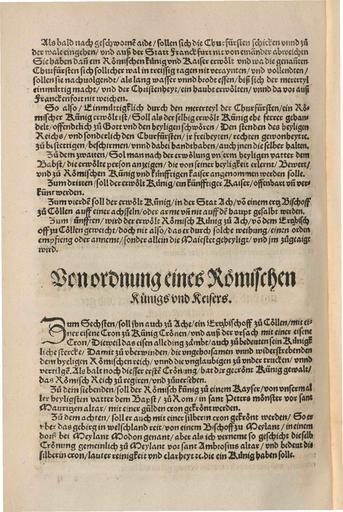 Als bald nach geschworne aide/ sollen sich die Churfürsten schicken vnnd zů
der wal eingehen/ vnd auß der Statt Franckfurt nit von einander abweichen
Sie haben dañ ein Römischen künig vnd Kaiser erwölt vnd wa die genanten
Churfürsten sich sollicher wal in dreissig tagen nit verainten/ vnd vollendten/
sollen sie nachuolgends/ als lang wasser vnnd brode essen/ biß sich der merertyl
einmütig macht/ vnd der Christenheyt/ ein haubt erwölten/ vnnd da vor auß
Franckenfort nit weichen.
So also/ Einmüttigklich durch den merertyl der Churfürsten/ ein Römischer
Künig erwölt ist/ Soll als der selbig erwölt Künig ehe ferrer gehandelt/
offentlich zů Gott vnd den heyligen schwören/ Den stenden des heyligen
Reichs/ vnd sonderlich den Churfürsten/ ir freiheyten/ rechten gewonheyten/
zů bestettigen/ beschirmen/ vnnd dabei handthaben/ auch jnen die selber halten.
Zu dem zwaiten/ Sol man nach der erwölung vnserm heyligen vatter dem
Babst/ die erwölte person anzeigen/ die von seiner heyligkeit erlernt/ Bewert/
vnd zů Römischen Künig vnd künfftigen kaiser angenommen werden solle.
Zum dritten/ soll der erwölt Künig/ ein künfftiger Kaiser/ offenbart vñ verkünt
werden.
Zum vierdē soll der erwölt Künig/ in der Stat Ach/ võ einem ertz Bischoff
zů Cöllen auff einer achseln/ oder arme vñ nit auff dē haupt gesalbt werden.
Zum fünfften/ wird der erwölt Römisch Künig zů Ach/ võ dem Ertzbischoff
zů Cöllen geweicht/ doch nit also/ das er durch solche weihung/ einen orden
empfieng oder anneme/ sonder allein die Maiestet geheyligt/ vnd im zůgeaigt
wird.
Von ordnung eines Römischen
Künigs vnd Keisers.
Zum Sechsten/ soll jhn auch zů Ache/ ein Ertzbischoff zů Cöllen/ mit einer
eisene Cron zů Künig Krönen/ vnd auß der vrsach mit einer eisene
Cron/ Dieweil das eisen alle ding zämbt/ auch zů bedeuten sein Künigkliche
stercke/ Damit zů überwinden/ die vngehorsamen vnnd widerstrebenden
dem heyligen Römischen reich/ vnnd die vnglaubigen zů vnder trucken/ vnnd
vertilgē. Als balt nach dieser erstē Crönung/ hat der gecrönt Künig gewalt/
das Römisch Reich zů regiren/ vnd zůuersehen.
Zů dem siebenden/ soll der Römisch künig zů einem Kayser/ von vnserm aller
heyligsten vatter dem Bapst/ zů Rom/ in sant Peters mönster vor sant
Mauritzen altar/ mit einer gülden cron gekrönt werden.
Zů dem achten/ soll er auch mit einer silberin cron gekrönt werden/ So er
vber das gebirg in welschland reit/ von einem Bischoff zů Meylant/ in einem
dorff bei Meylant Modon genant/ aber als ich vernem so geschicht dieselb
Crönung gemeinlich zů Meylant vor sant Ambrosius altar/ vnd bedeut die
silberin cron/ lauter reinigkeit vnd clarheyt ꝛc. die ein Künig haben solle.